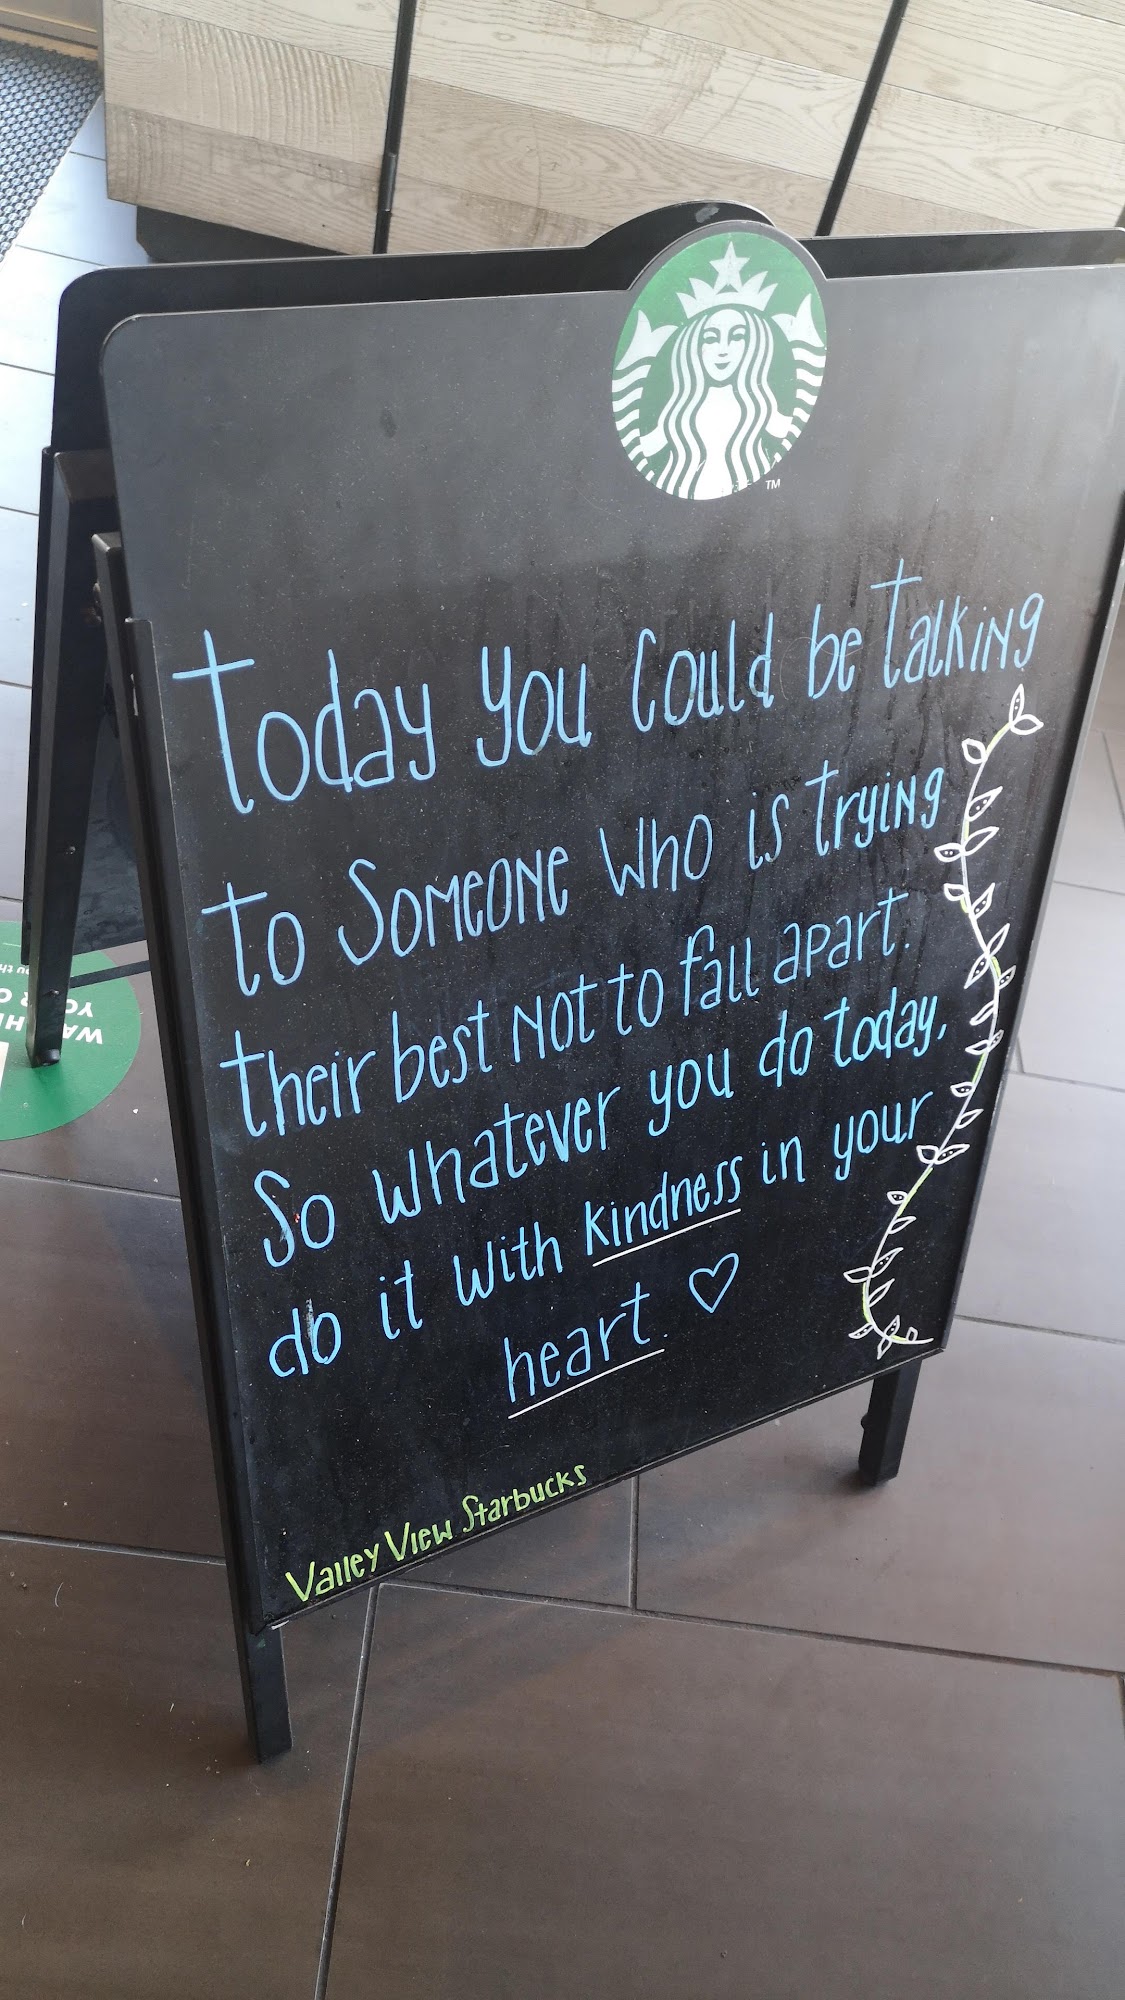 TM
Today you could be Talking
to Someone who is trying
their best not to fall apart.
So whatever you do today,
do it with kindness in your
heart. ♡
Valley View Starbucks